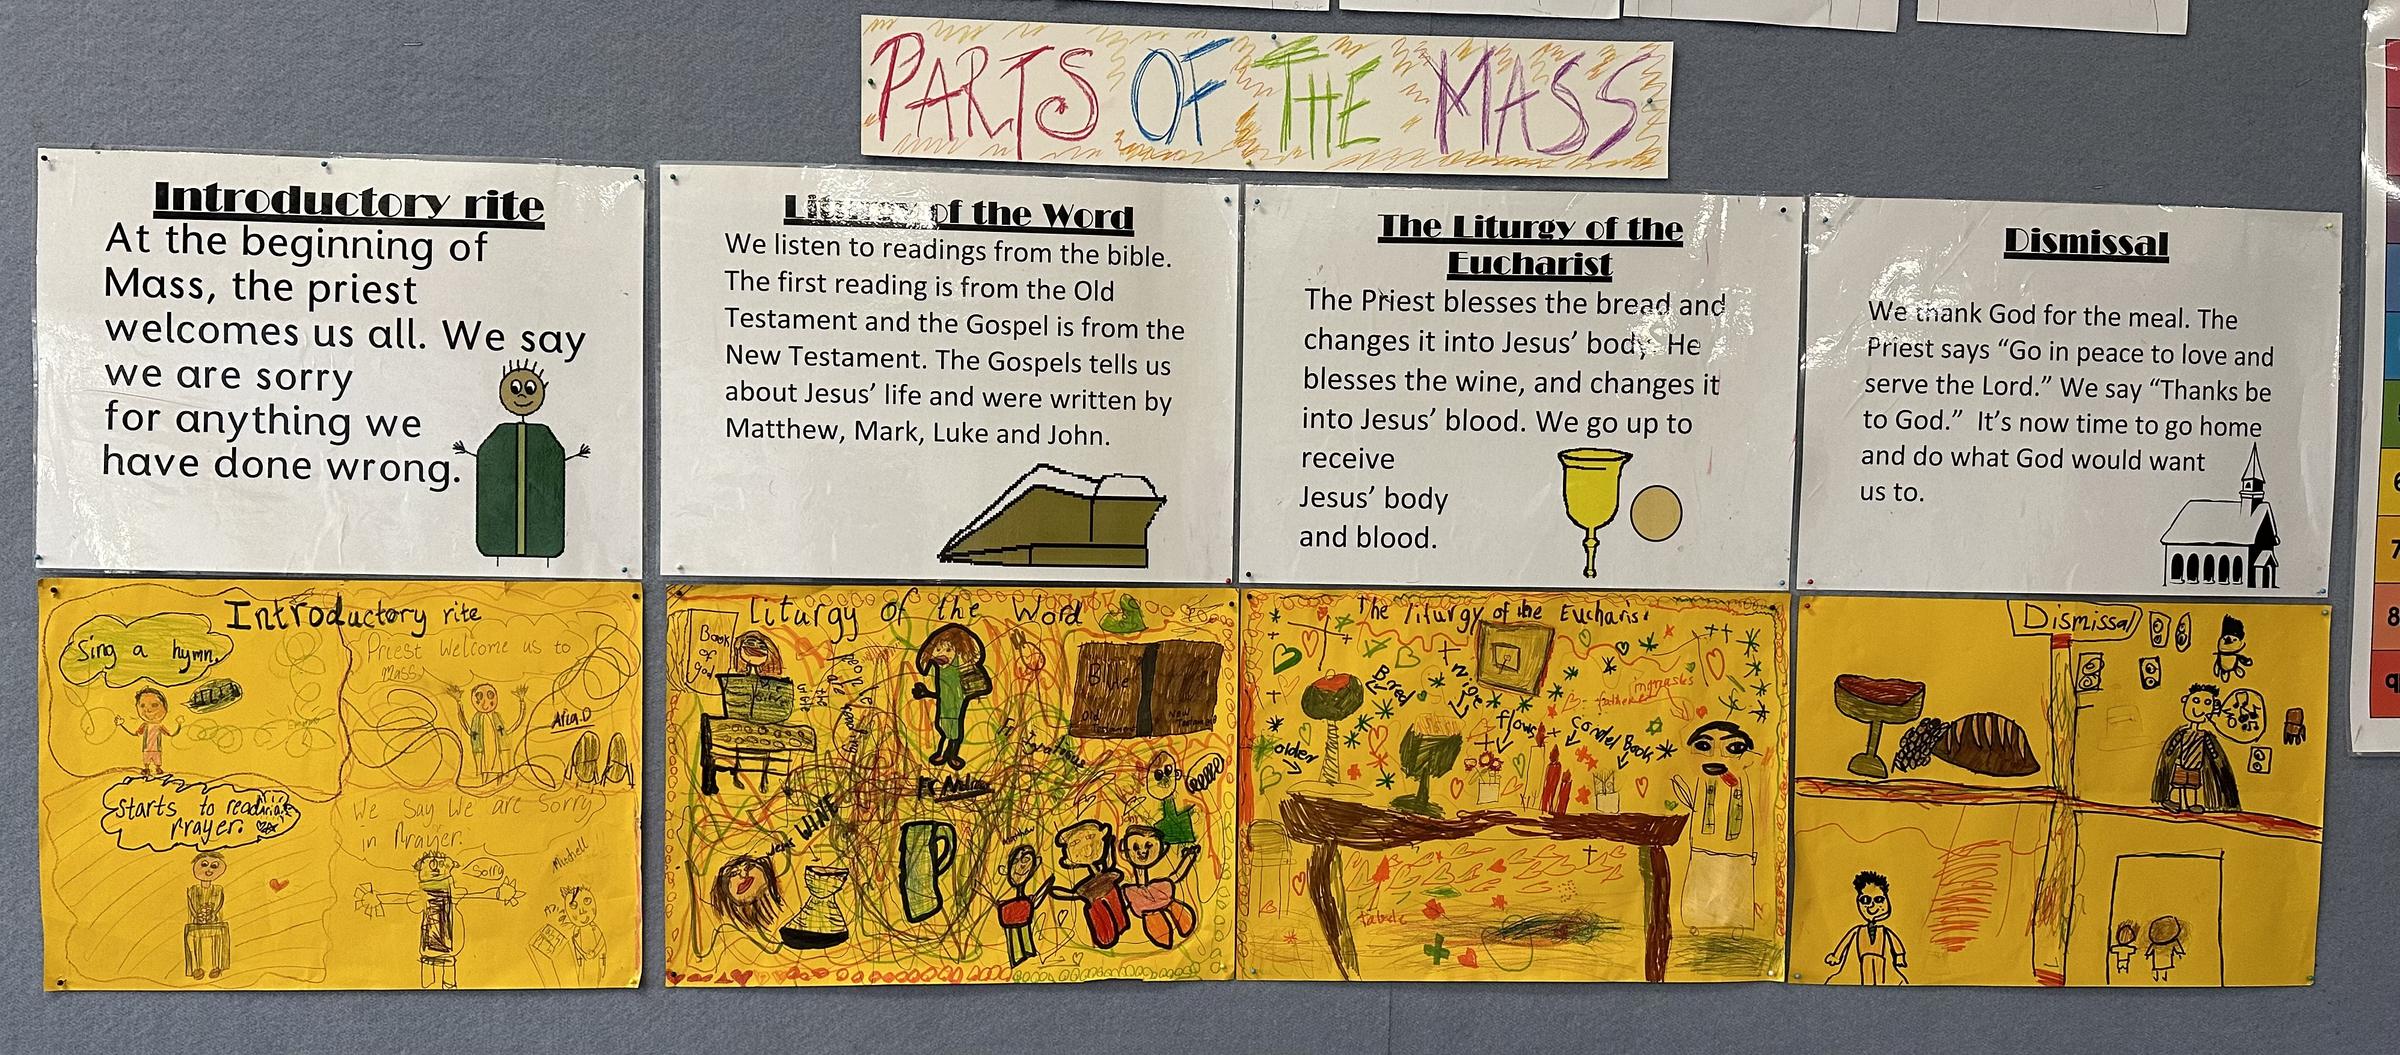 PARTS OF THE MASS
Introductory rite
At the beginning of
Mass, the priest
welcomes us all. We say
we are sorry
for anything we
have done wrong.
Liturgy of the Word
We listen to readings from the bible.
The first reading is from the Old
Testament and the Gospel is from the
New Testament. The Gospels tells us
about Jesus’ life and were written by
Matthew, Mark, Luke and John.
The Liturgy of the
Eucharist
The Priest blesses the bread and
changes it into Jesus’ body. He
blesses the wine, and changes it
into Jesus’ blood. We go up to
receive
Jesus’ body
and blood.
Dismissal
We thank God for the meal. The
Priest says “Go in peace to love and
serve the Lord.” We say “Thanks be
to God.” It’s now time to go home
and do what God would want
us to.
Introductory rite
Sing a hymn.
Priest Welcome us to
mass
Starts to read
Prayer.
We Say We are Sorry
in Prayer.
Sorry
Liturgy of the Word
Book
of
god
Old
Testament
New
WINE
The liturgy of the Eucharist
flows
Book
table
Dismissal
7
8